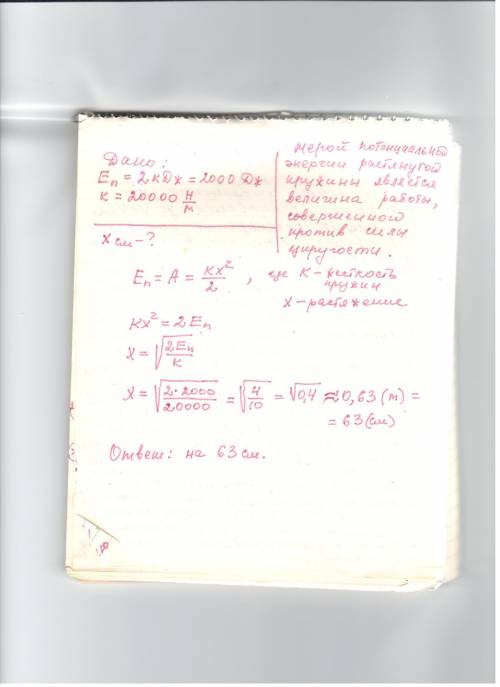 Дано:
Eп = 2 кДж = 2000 Дж
K = 20000 Н/м
X см - ?
мерой потенциальной
энергии растянутой
пружины является
величина работы,
совершенного
против силы
упругости.
Eп = A = KX²/2 , где K - жесткость
пружин
X - растяжение
KX² = 2Eп
X = √(2Eп/K)
X = √(2·2000/20000) = √(4/10) = √0,4 ≈ 0,63 (м) =
= 63 (см)
Ответ: на 63 см.